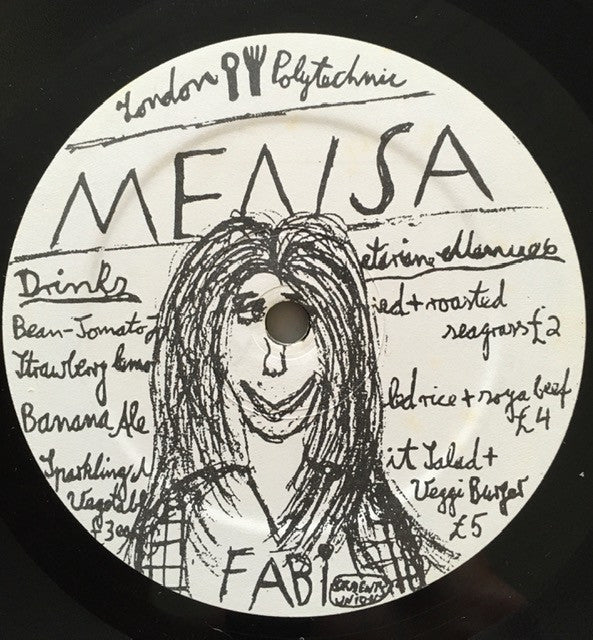 London Polytechnic
MENSA
Drinks
Bean-Tomato J
Strawberry lemo
Banana Ale
Sparkling
Vegetabl
£3
etarian
ied + roasted
seagrass £2
led rice + soya beef
£4
it Salad +
Veggi Burger
£5
FABI
UNION